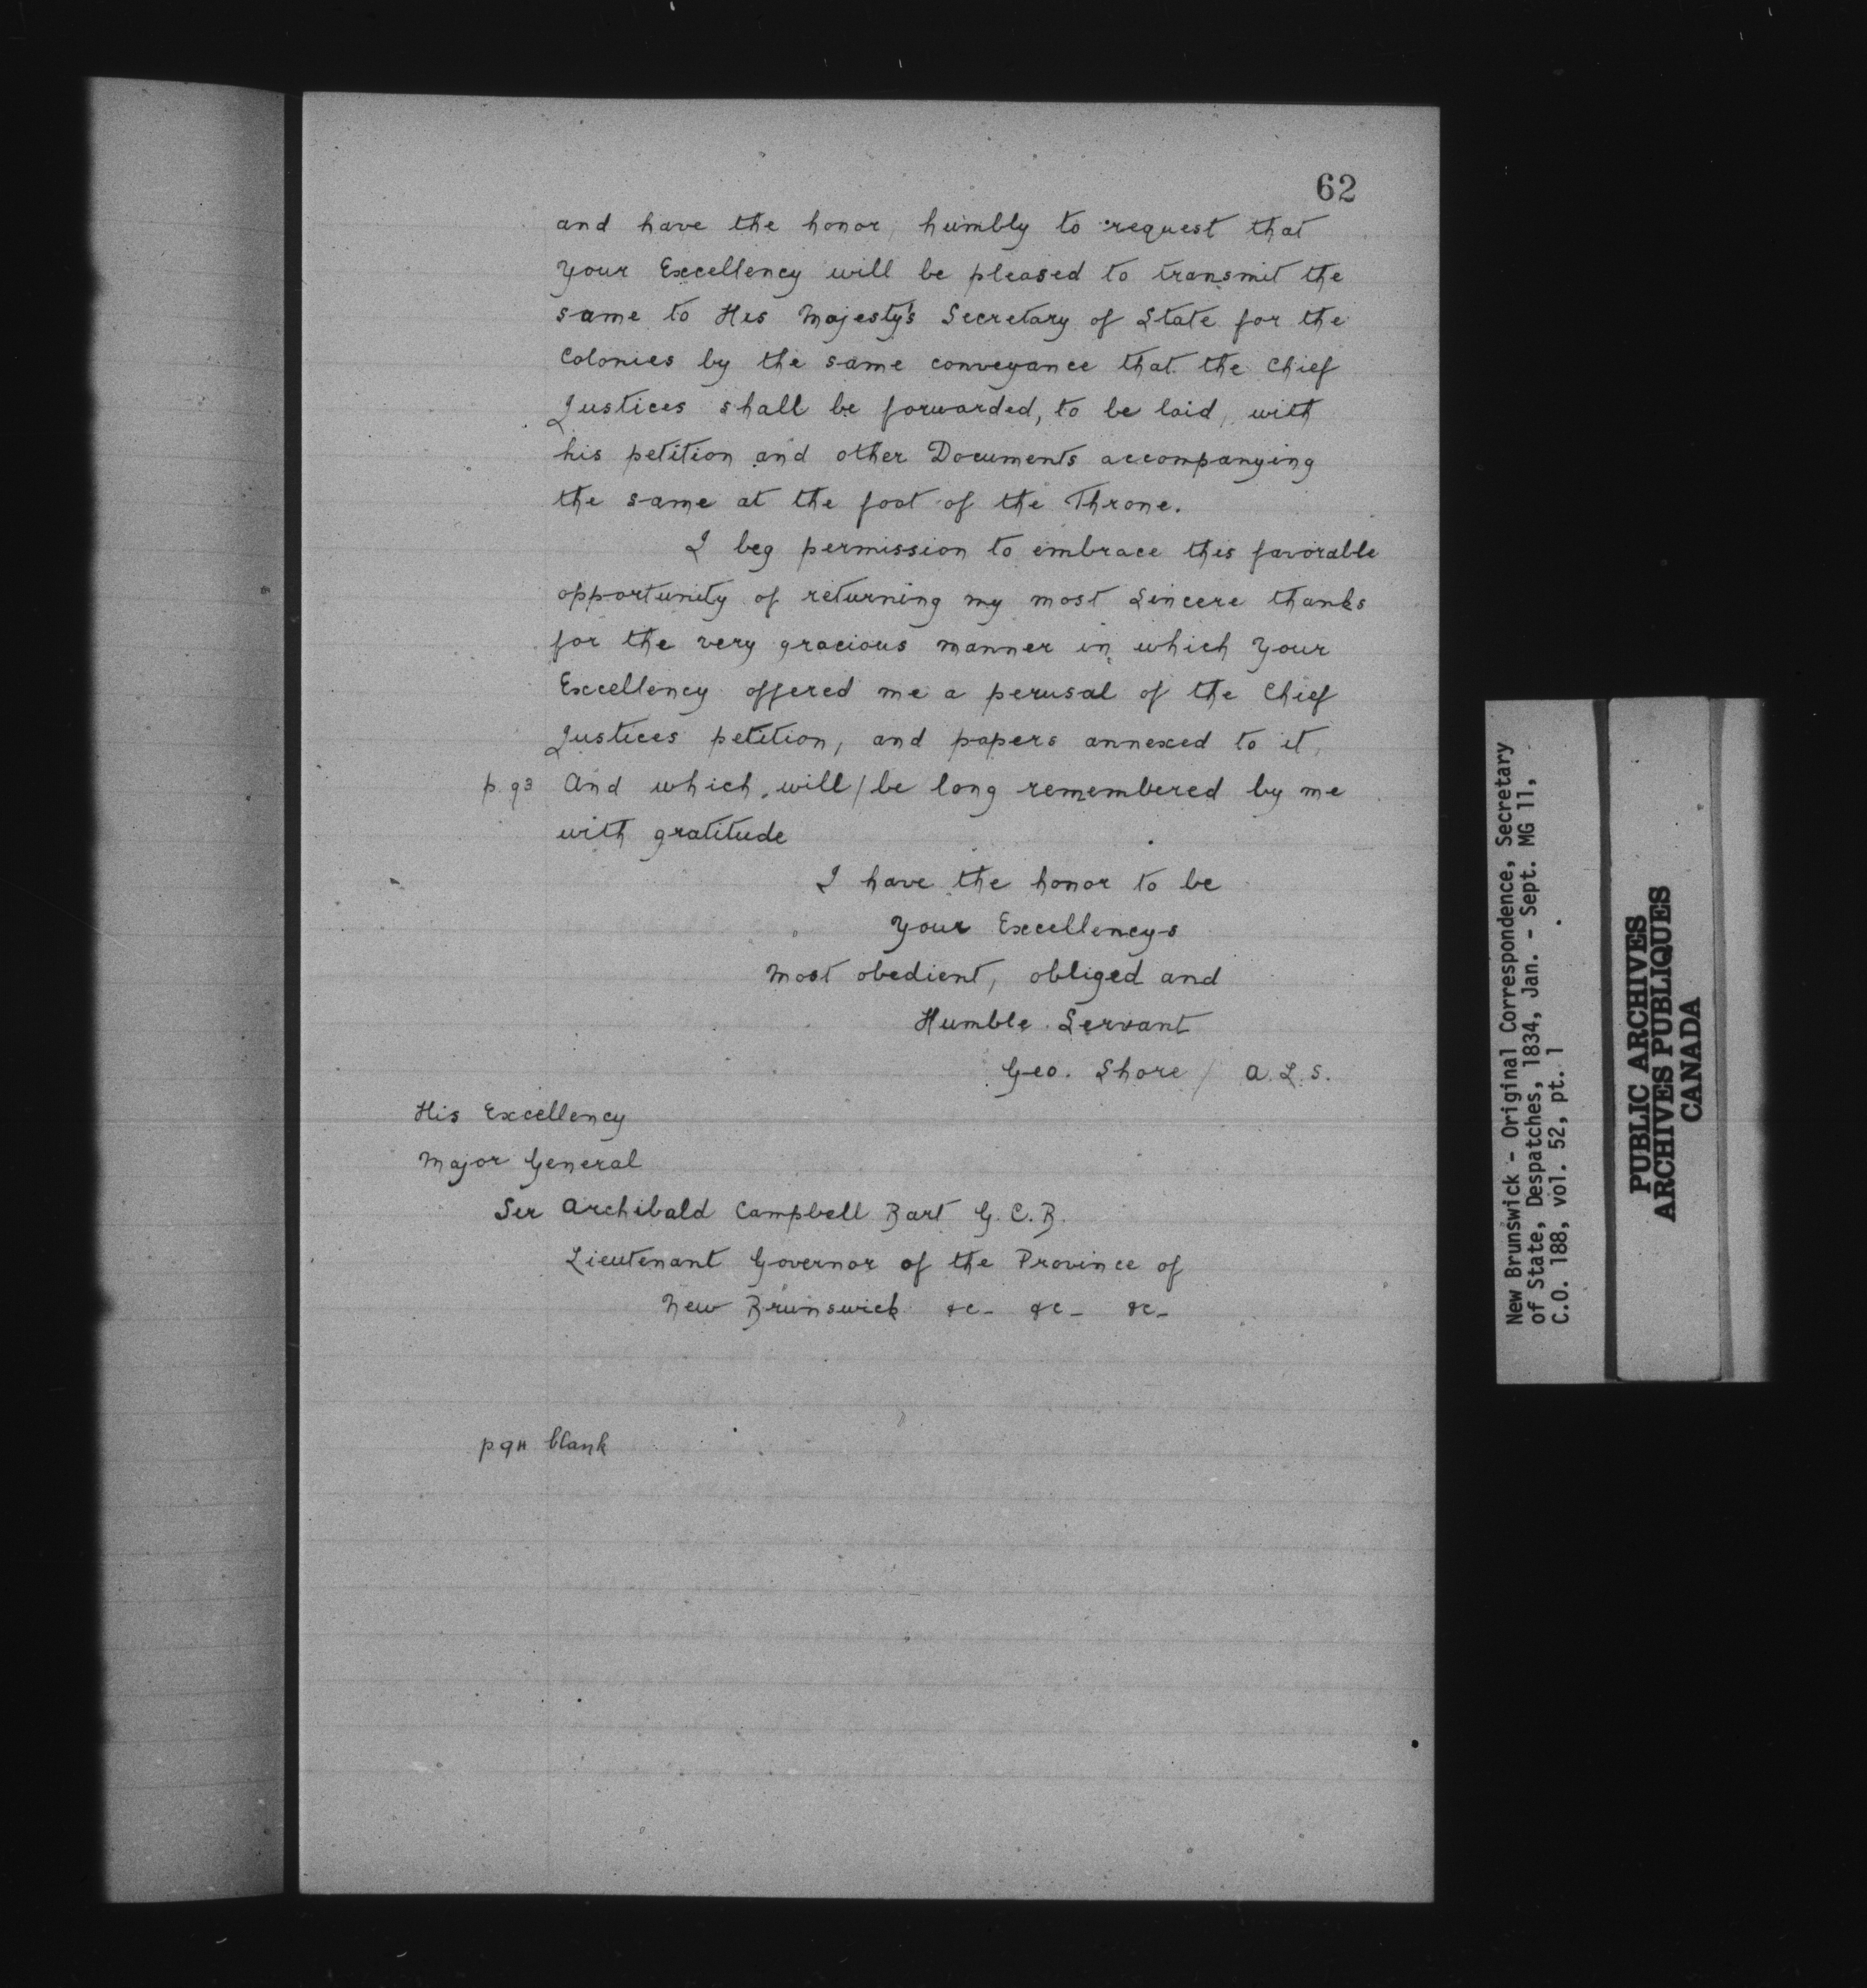 62
and have the honor, humbly to request that
Your Excellency will be pleased to transmit the
same to His Majesty's Secretary of State for the
Colonies by the same conveyance that the Chief
Justices shall be forwarded, to be laid, with
his petition and other Documents accompanying
the same at the foot of the Throne.
I beg permission to embrace this favorable
opportunity of returning my most Sincere thanks
for the very gracious manner in which Your
Excellency offered me a perusal of the Chief
Justices petition, and papers annexed to it,
p. 93 And which will / be long remembered by me
with gratitude
I have the honor to be
Your Excellencys
Most obedient, obliged and
Humble Servant
Geo. Shore / A.L.S.
His Excellency
Major General
Sir Archibald Campbell Bart G.C.B.
Lieutenant Governor of the Province of
New Brunswick &c- &c- &c-
p 94 blank
New Brunswick - Original Correspondence, Secretary
of State, Despatches, 1834, Jan. - Sept. MG 11,
C.O. 188, vol. 52, pt. 1
PUBLIC ARCHIVES
ARCHIVES PUBLIQUES
CANADA